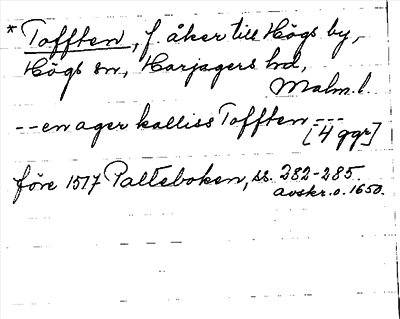 * Tofften, f. åker till Högs by,
Högs sn., Harjagers hd,
Malm. l.
-- en ager kalliss Tofften ---
[4 ggr]
före 1517 Palteboken, ss. 282-285.
avskr. o. 1650.